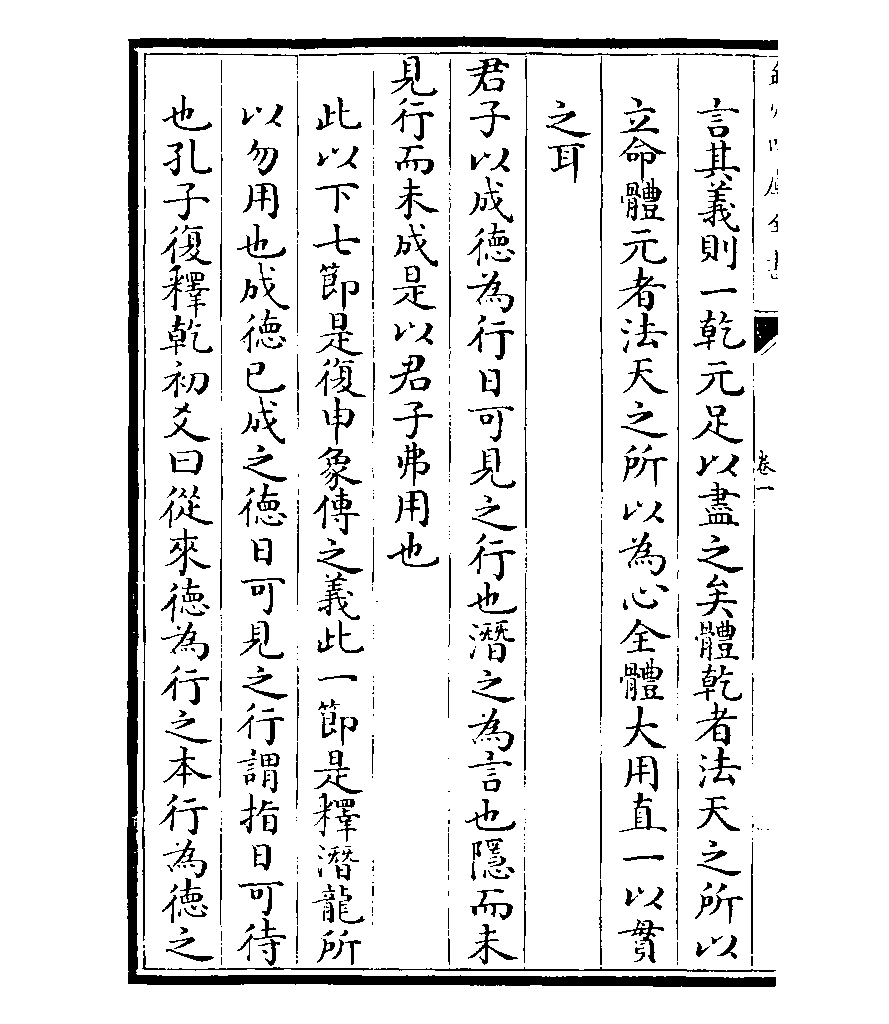 欽定四庫全書
卷一
言其義則一乾元足以盡之矣體乾者法天之所以
立命體元者法天之所以為心全體大用直一以貫
之耳
君子以成德為行日可見之行也潛之為言也隱而未
見行而未成是以君子弗用也
此以下七節是復申象傳之義此一節是釋潛龍所
以勿用也成德已成之德日可見之行謂指日可待
也孔子復釋乾初爻曰從來德為行之本行為德之